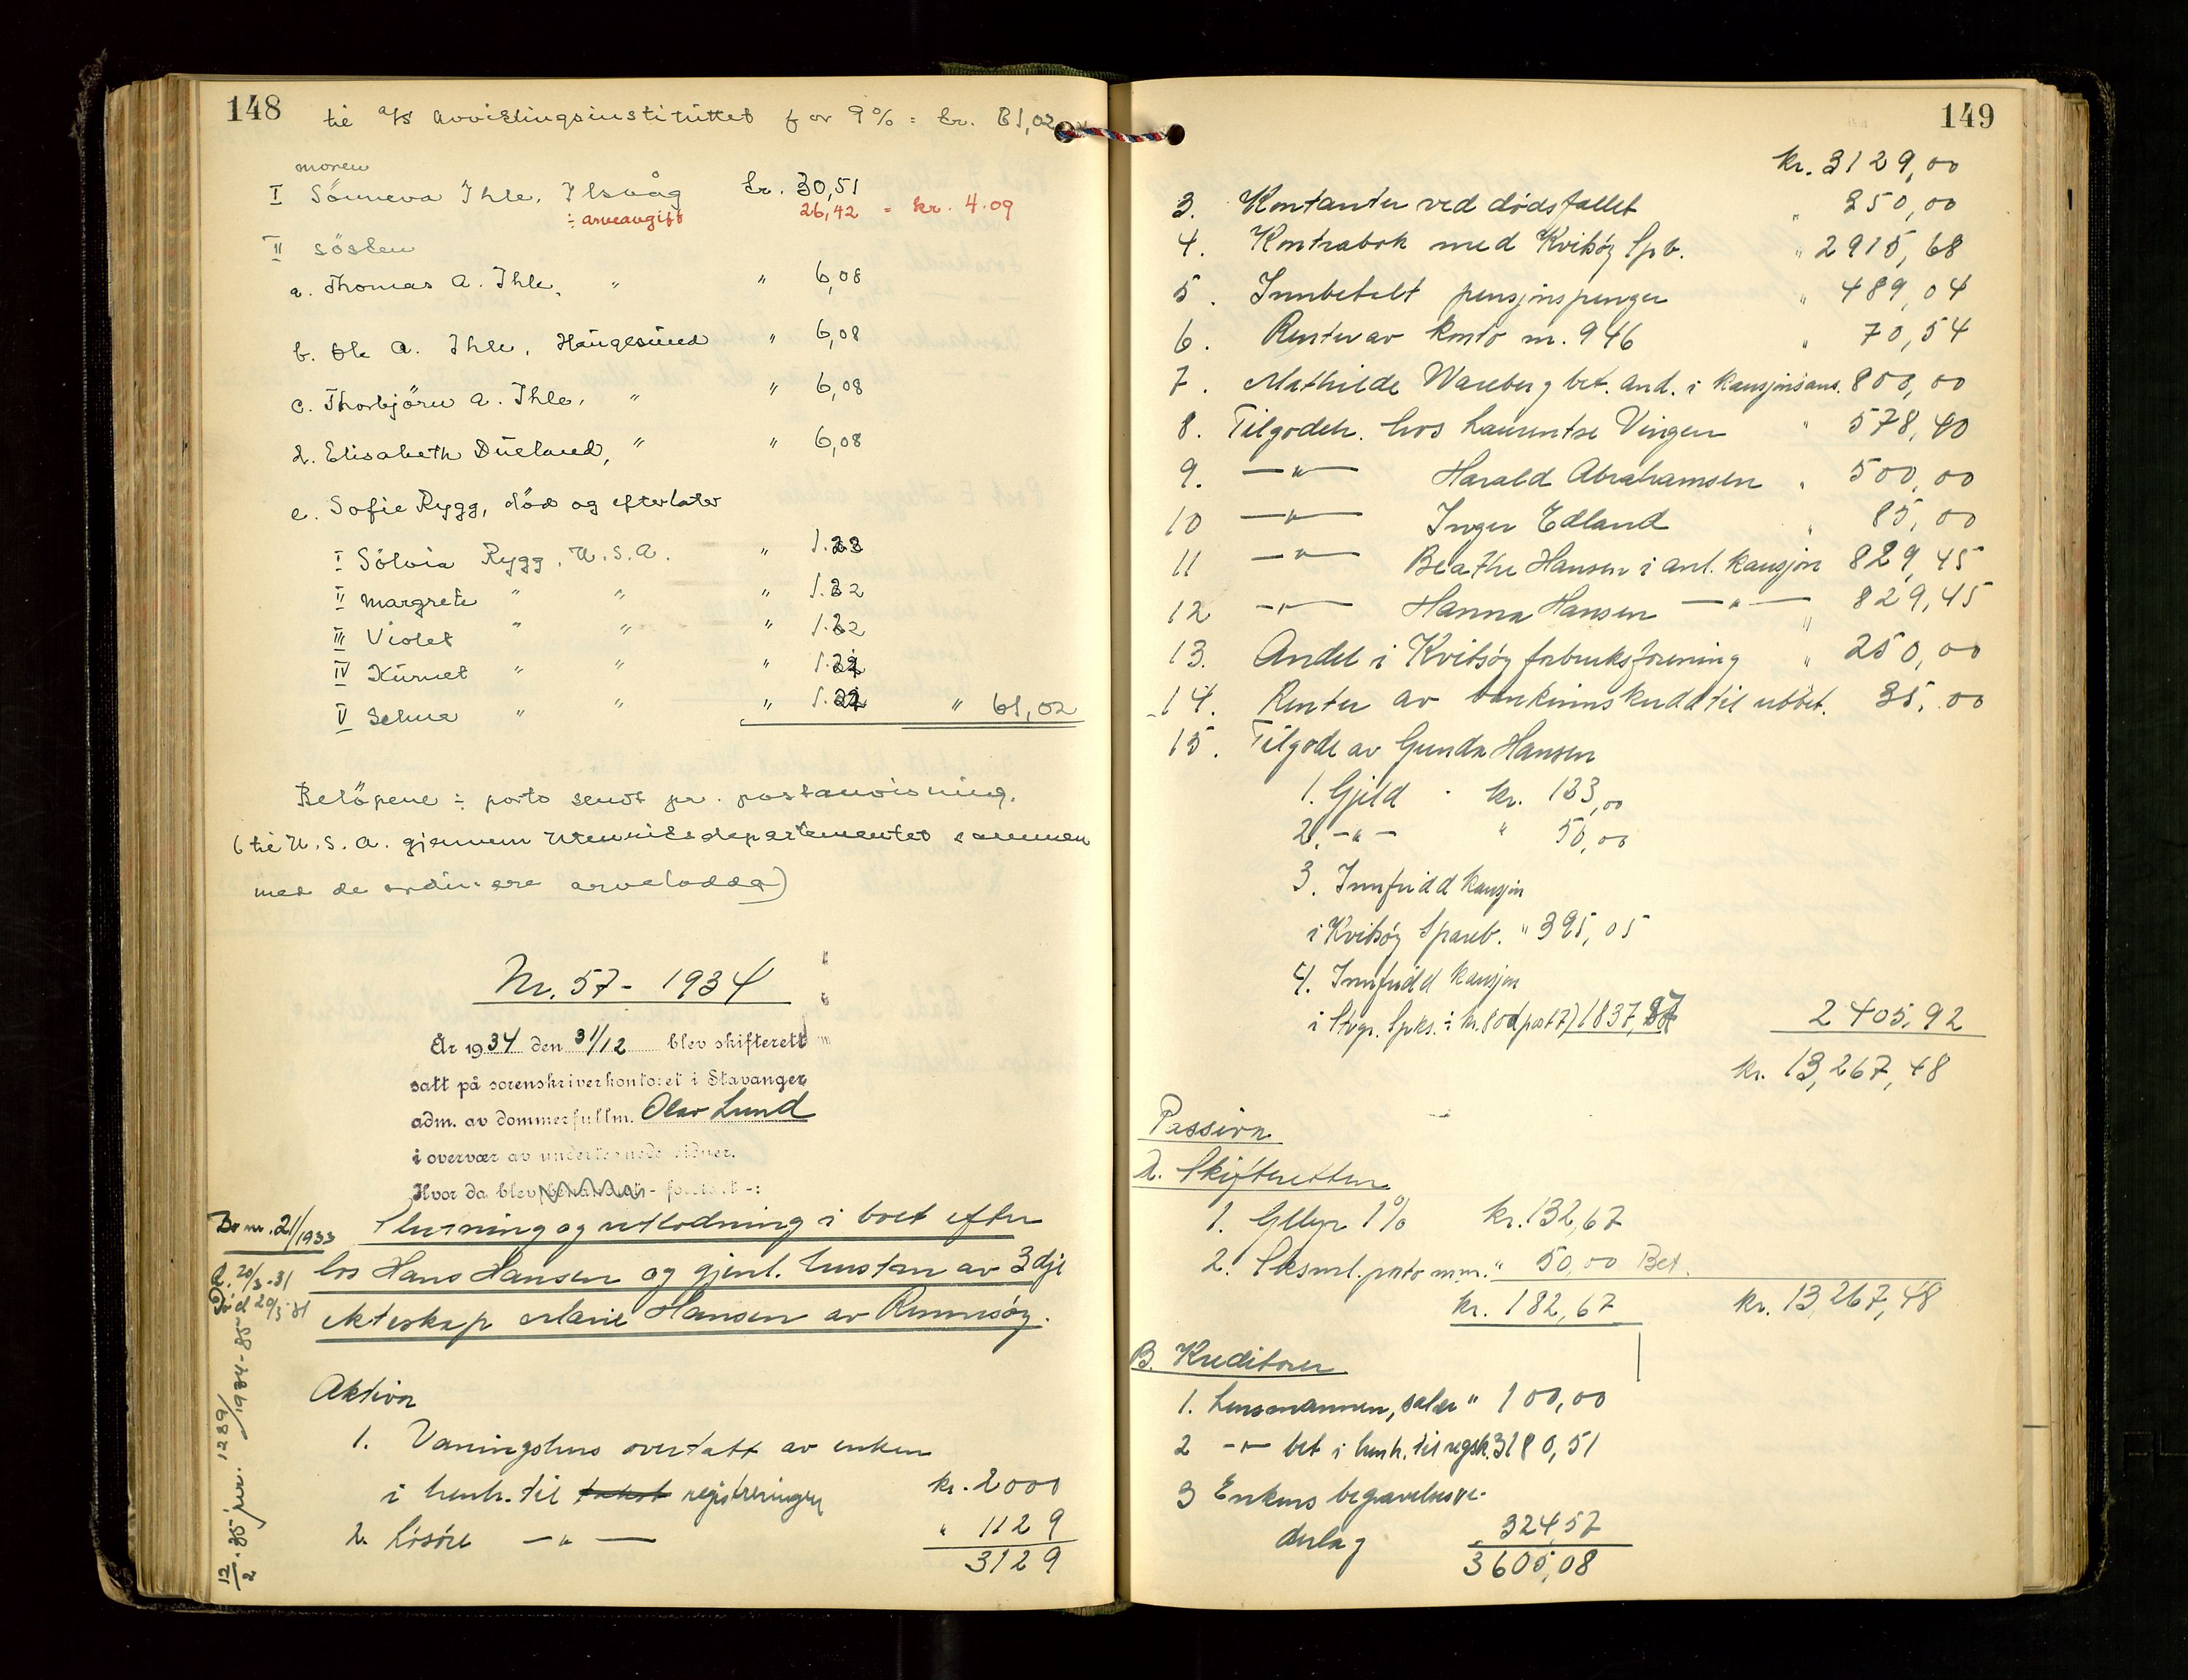 148
til a/s Avviklingsinstituttet for 9% = kr. 61,02
moren
I Sönneva Ihle, Ilsvåg kr. 30,51
÷ arveavgift 26,42 = kr. 4.09
II Søsken
a. Thomas A. Ihle, " " 6,08
b. Ole A. Ihle, Haugesund " 6,08
c. Thorbjörn A. Ihle, " " 6,08
d. Elisabeth Dueland, " " 6,08
e. Sofie Rygg, död og efterlater
I Sölvia Rygg, U.S.A. "
II Margrete " " " 1.22
III Violet " " " 1.22
IV " " "
V Selma " " " " 61,02
Belöpene ÷ porto sendt pr. postanvisning.
(til U.S.A. gjennem Utenriksdepartementet sammen
med de ordinære arvelodder)
Nr. 57 - 1934
År 1934 den 31/12 blev skifterett
satt på sorenskriverkontoret i Stavanger
adm. av dommerfullm. Olav Lund
i overvær av undertegnede vidner.
Hvor da blev behandlet - foretatt -:
Bo nr. 21/1933 Slutning og utlodning i boet efter
20/3-31 los Hans Hansen og gjenl. hustru av 3dje
Död 20/3-31 ekteskap Marie Hansen av Rennesøy.
12/2-35 jnr. 1289/1934-35
Aktiva
1. Vaningshus overtatt av enken
i henh. til takst registreringen kr. 2000
2. Løsøre — " — " 1129
3129
149
kr. 3129,00
3. Kontanter ved dødsfallet " 250,00
4. Kontrabok med Kvitsøy Spb. " 2915,68
5. Innbetalt pensjonspenger " 489,04
6. Renter av konto nr. 946 " 70,54
7. Mathilde Wareberg bet. and. i kausjonsans. 800,00
8. Tilgodeh. hos Laurentse Vingen " 578,40
9. — " — Harald Abrahamsen " 500,00
10 — " — Inger Edland " 85,00
11 — " — Beathe Hansen i anl. kausjon 829,45
12 — " — Hanna Hansen — " — " 829,45
13. Andel i Kvitsøy forbruksforening " 250,00
14. Renter av bankinnskudd til utbet. 35,00
15. Tilgode av Gunda Hansen
1. Gjeld kr. 123,00
2. - " - " 50,00
3. Innfridd kausjon
i Kvitsøy Spareb. " 395,05
4. Innfridd kausjon
i Stvgr. Spks. ÷ kr. 800 (post 7) 1837,87 2405,92
kr. 13,267,48
Passiva
A. Skifteretten
1. Gebyr 1% kr. 132,67
2. Sksml. porto m.m. " 50,00 Bet.
kr. 182,67 kr. 13,267,48
B. Kreditorer
1. Lensmannen, salær " 100,00
2 - " - bet i henh. til regsk. 3180,51
3 Enkens begravelsesve-
derlag 324,57
3605,08